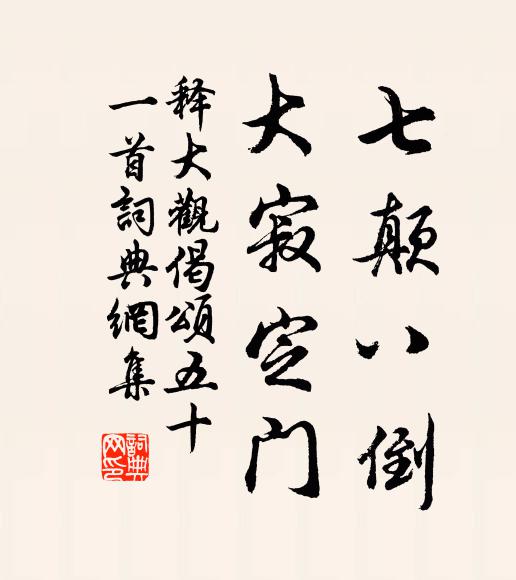 七顛八倒
大寂定门
释大觀偈頌五十
一首詞典網集
詞典网印